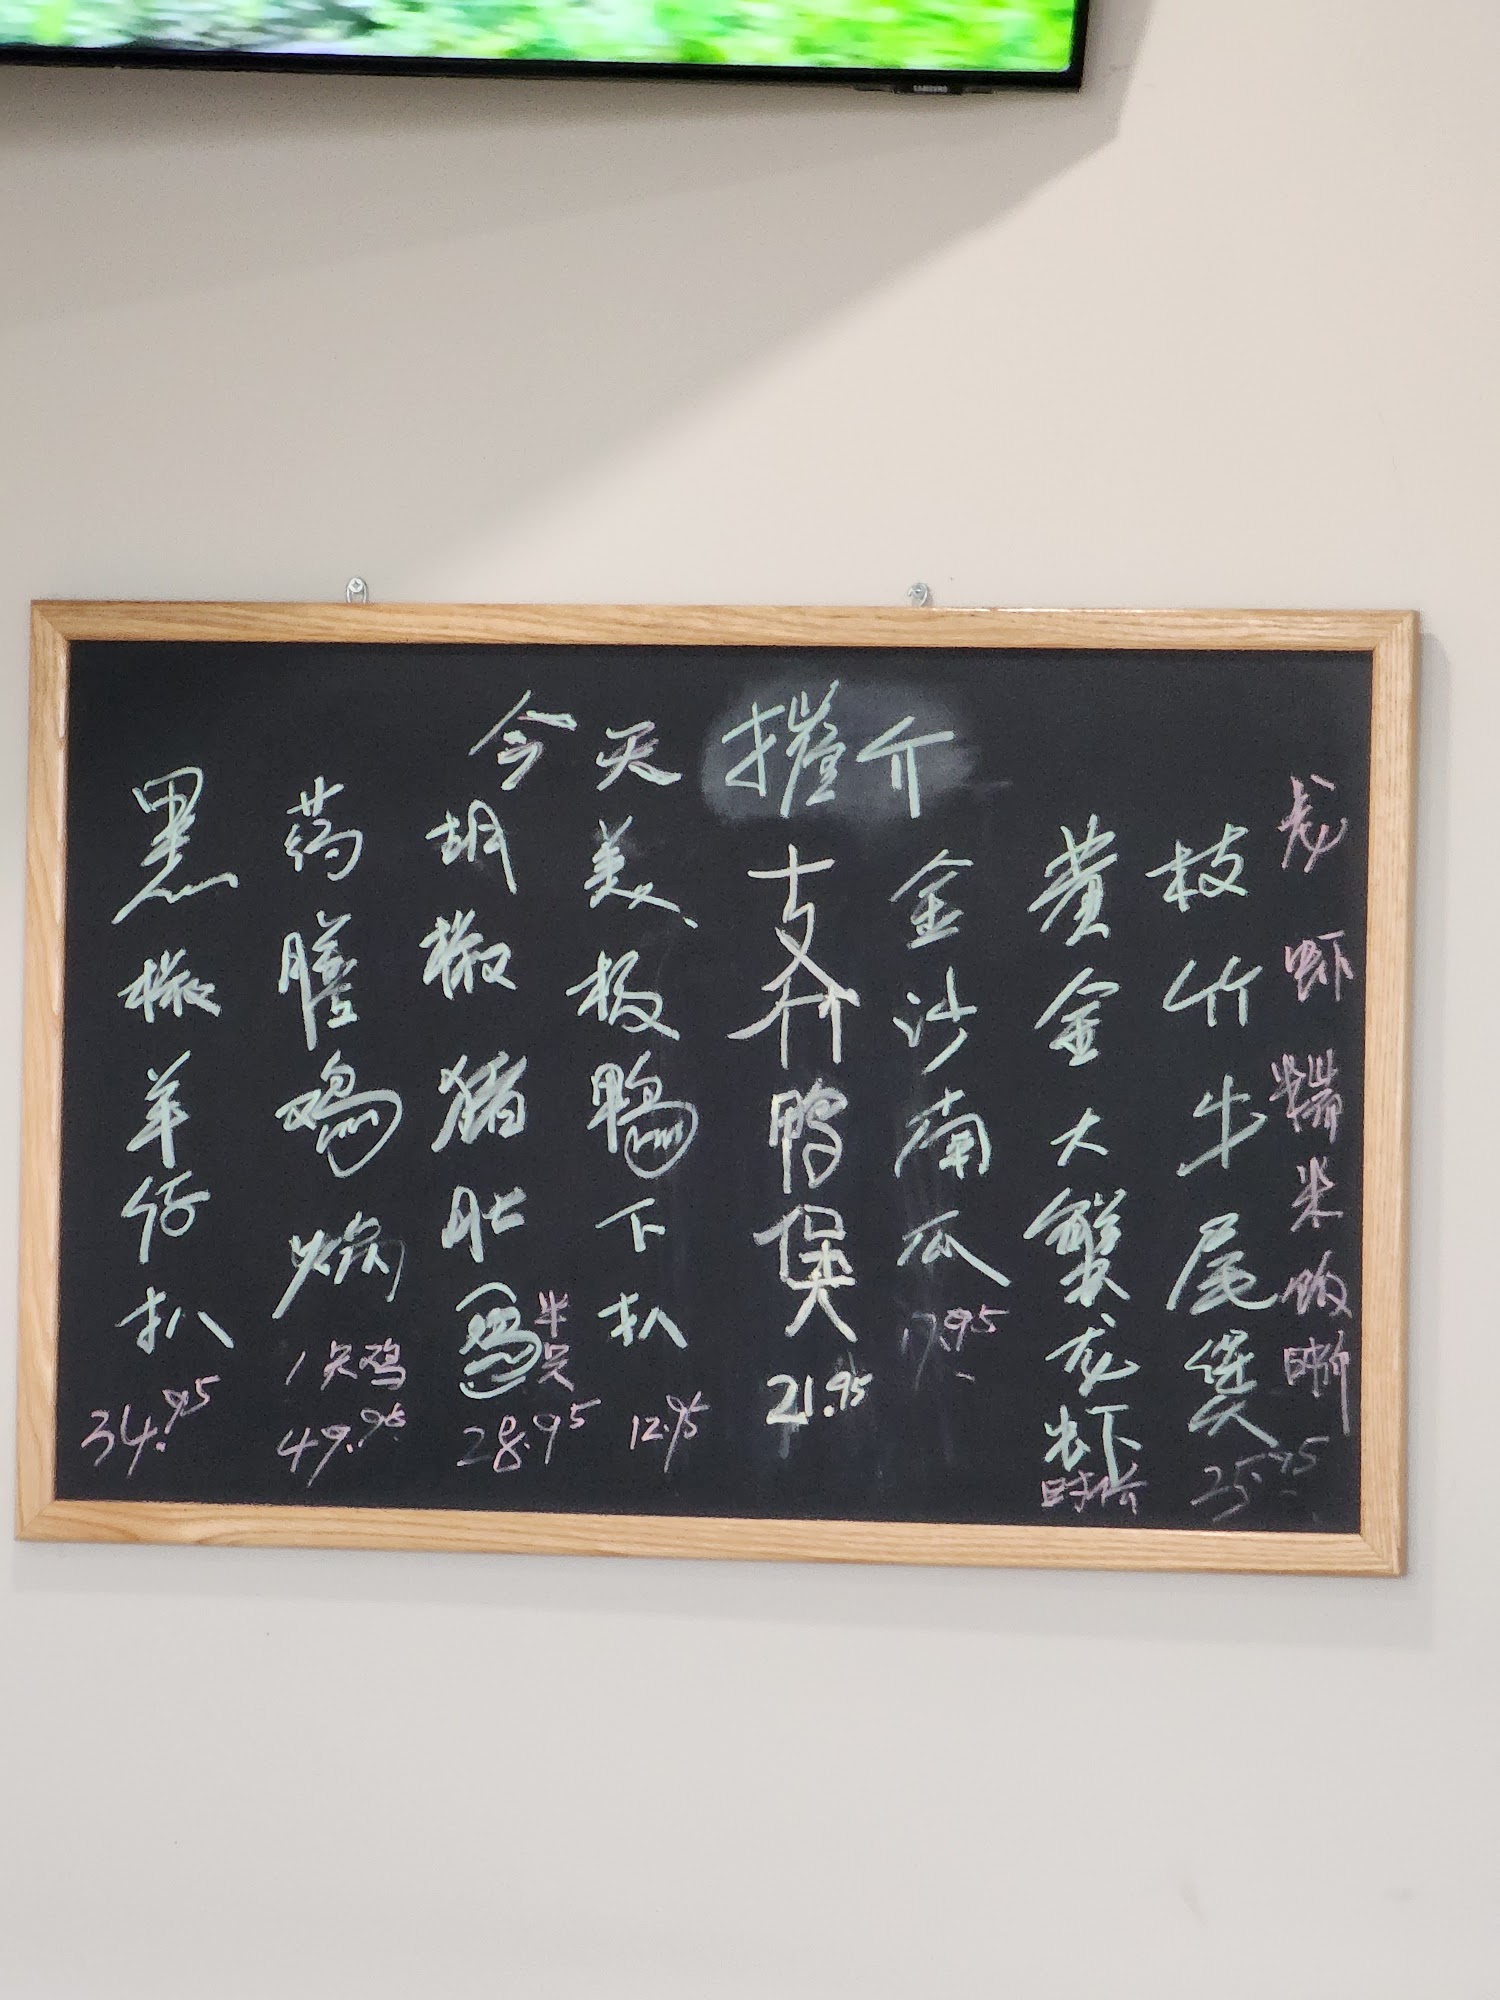 今天摧介
龙虾糯米饭 时价
枝竹牛尾煲 25.95
黄金大蟹龙虾 时价
金沙南瓜 17.95
支竹鸭煲 21.95
美极鸭下扒 12.95
胡椒猪肚鸡 半只 28.95
药膳鸡煱 1只鸡 49.95
黑椒羊仔扒 34.95